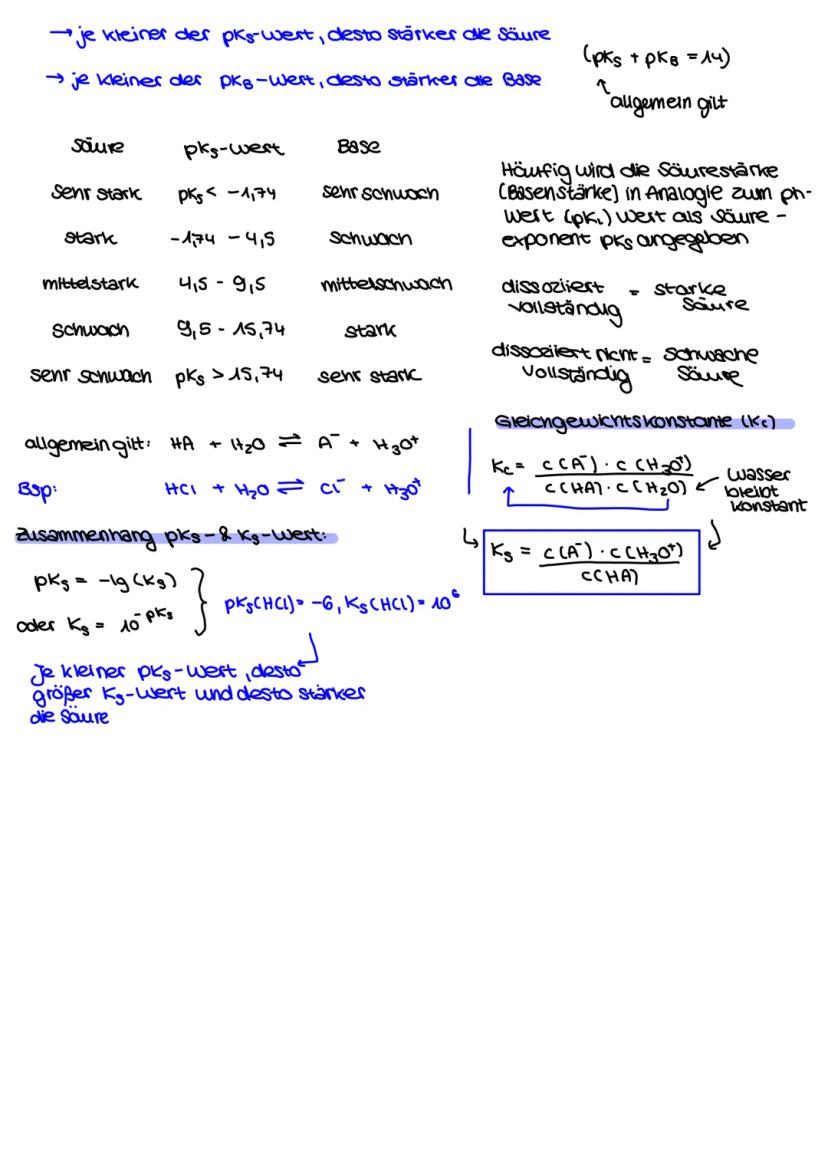 → je kleiner der pKs-Wert, desto stärker die Säure
→ je kleiner der pKB-Wert, desto stärker die Base
(pKs + pKB = 14)
↑ allgemein gilt
Säure pKs-Wert Base
sehr stark pKs < -1,74 sehr schwach
stark -1,74 - 4,5 schwach
mittelstark 4,5 - 9,5 mittelschwach
schwach 9,5 - 15,74 stark
sehr schwach pKs > 15,74 sehr stark
Häufig wird die Säurestärke
(Basenstärke) in Analogie zum ph-
Wert (pK.) Wert als Säure -
exponent pKs angegeben
dissoziiert = starke
vollständig Säure
dissoziiert nicht = schwache
vollständig Säure
allgemein gilt: HA + H₂O ⇌ A⁻ + H₃O⁺
Bsp: HCl + H₂O ⇌ Cl⁻ + H₃O⁺
Gleichgewichtskonstante (Kc)
Kc = c(A⁻) · c(H₃O⁺)
c(HA) · c(H₂O)
← Wasser
bleibt
konstant
↳ Ks = c(A⁻) · c(H₃O⁺)
c(HA)
Zusammenhang pKs- & Ks-Wert:
pKs = -lg(Ks)
oder Ks = 10^-pKs
pKs(HCl) = -6, Ks(HCl) = 10⁶
Je kleiner pKs-Wert, desto
größer Ks-Wert und desto stärker
die Säure